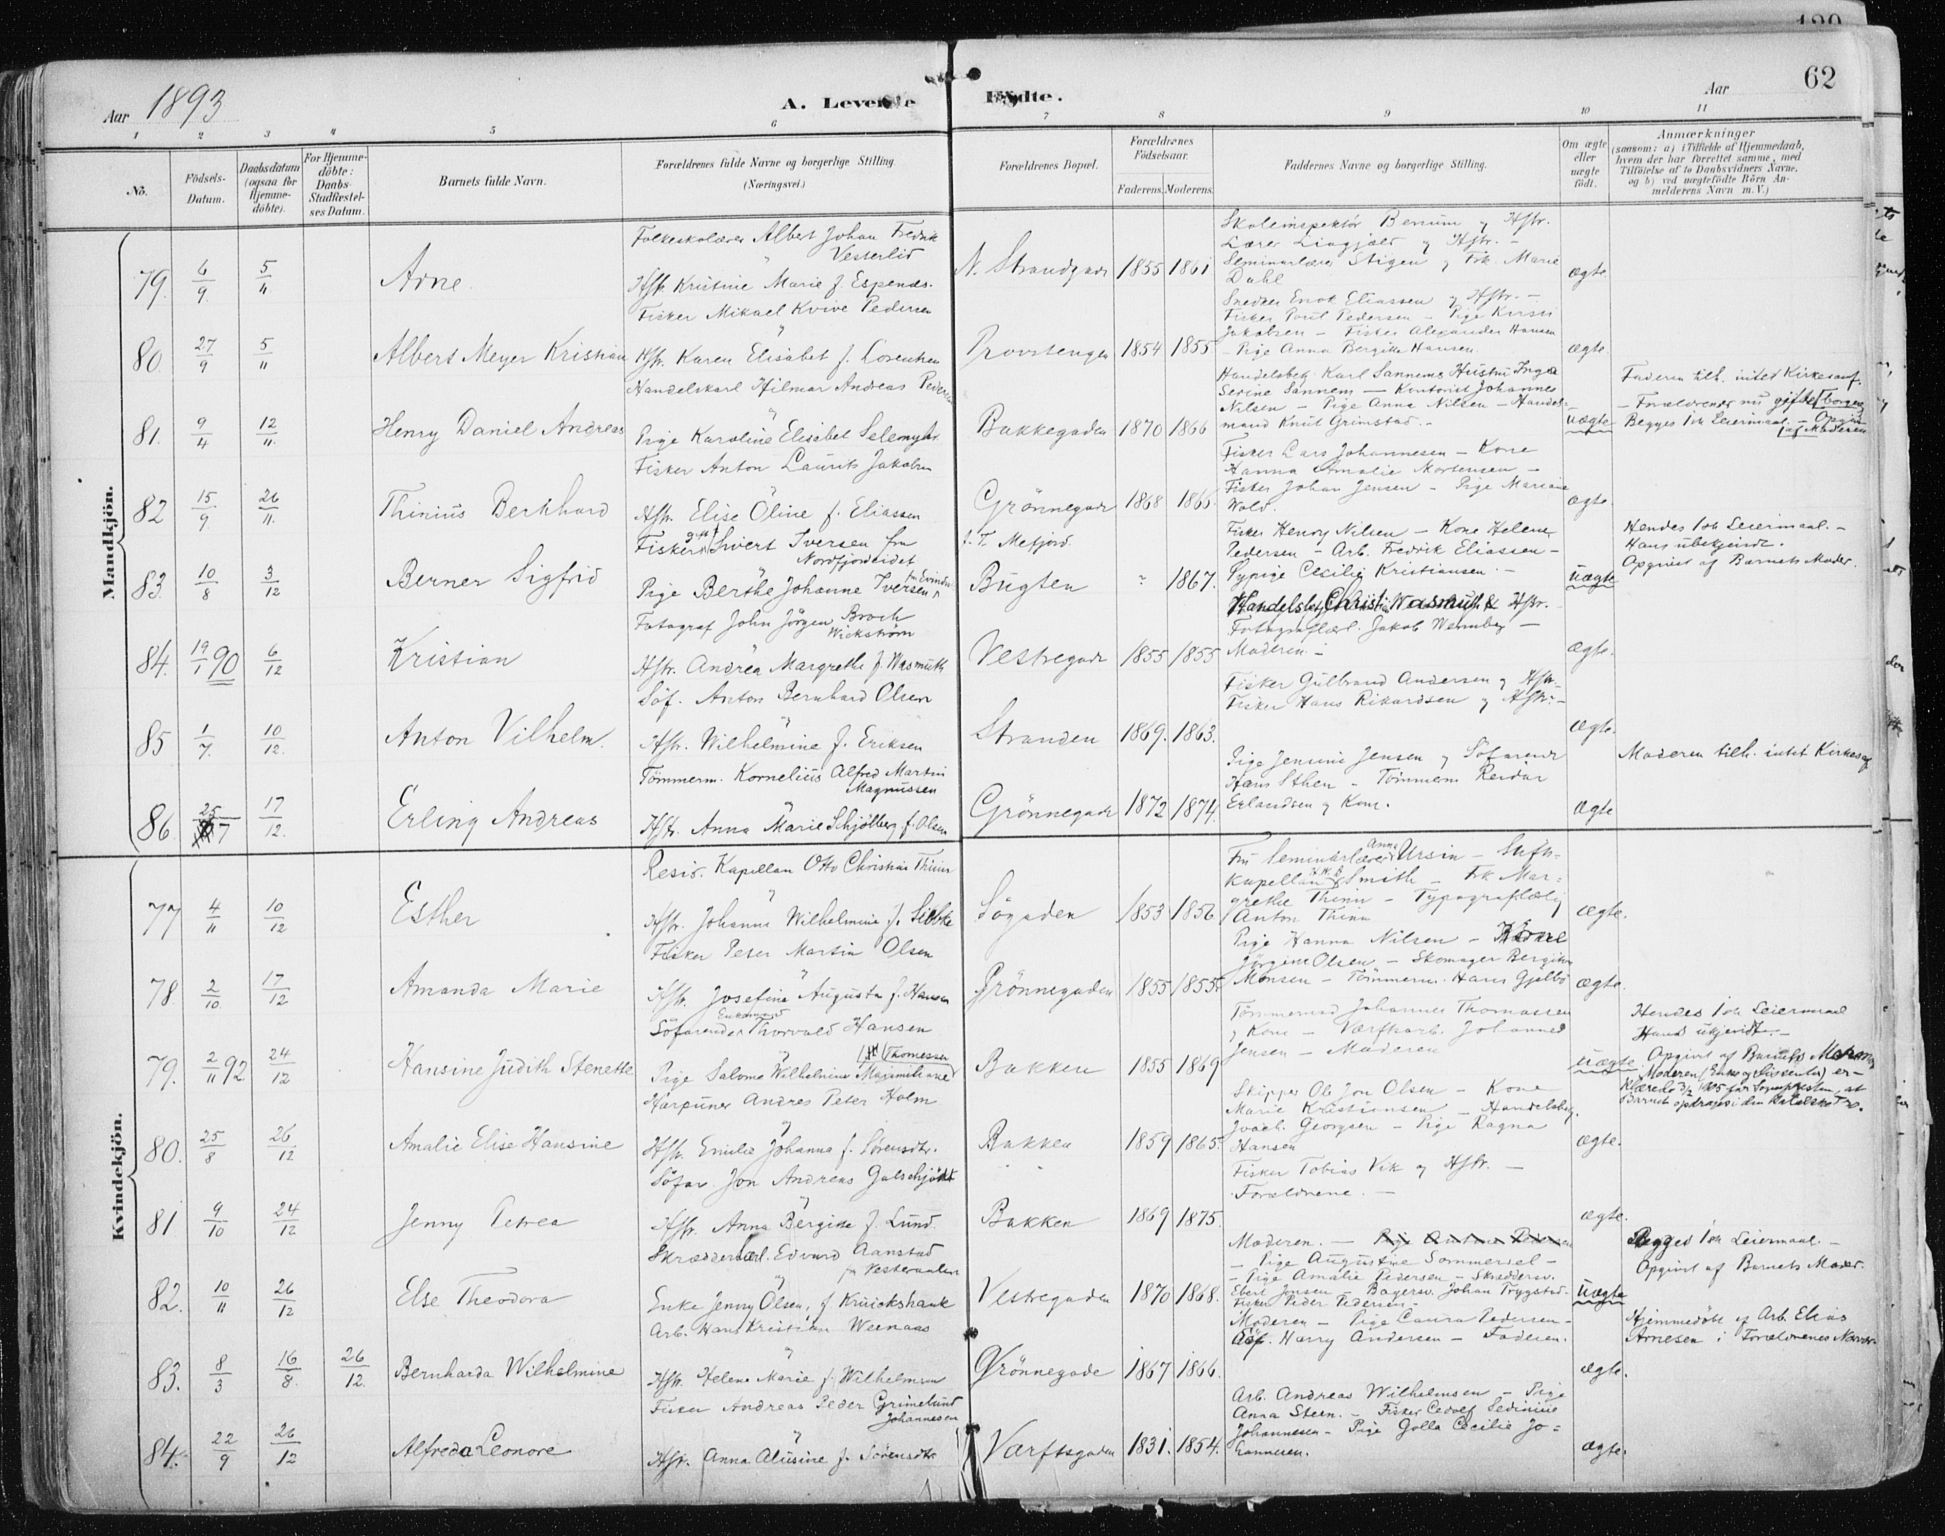 120
62
Aar 1893
A. Levende
Fødte.
Aar
1 2 3 4 5 6 7 8 9 10 11
No.
Födsels-Datum.
Daabsdatum (ogsaa for Hjemme-döbte).
For Hjemme-döbte: Daabs-Stadfæstel-ses Datum.
Barnets fulde Navn.
Forældrenes fulde Navne og borgerlige Stilling. (Næringsvei.)
Forældrenes Bopæl.
Forældrenes Födselsaar.
Faderens. Moderens.
Faddernes Navne og borgerlige Stilling.
Om ægte eller uægte födt.
Anmærkninger
(saasom: a) i Tilfælde af Hjemmedaab, hvem der har forrettet samme, med Tilföielse af to Daabsvidners Navne, og b) ved uægtefödte Börn An-melderens Navn m. V.)
Mandkjön.
79. 6/9 5/11 Arne.
Folkeskolærer Albert Johan Fredrik Vesterlid
Hstr. Kristine Marie f. Espenes.
N. Strandgade 1855 1861
Skoleinspektör Berrum og Hstr.
Lærer Lingjærd og Hstr. –
Seminarlærer Stigen og Frk. Marie
Dahl
ægte.
80. 27/9 5/11 Albert Meyer Kristian
Fisker Mikael Kvive Pedersen
Hstr. Karen Elisabet f. Lorentzen
Provstengen 1854 1855
Snedker Enok Eliassen og Hstr. –
Fisker Poul Pedersen – Pige Kirsti
Jakobsen – Fisker Alexander Hansen
– Pige Anna Bergitte Hansen
ægte.
81. 9/4 12/11. Henry Daniel Andreas
Handelskarl Hilmar Andreas Pedersen
Pige Karoline Elisabet Selemyhr.
Bakkegaden 1870 1866
Handelsbetj. Karl Sannems Hustru Inga
Serine Sannem – Kontorist Johannes
Nilsen – Pige Anna Nilsen – Handels-
mand Knut Grimstad. –
uægte
Faderen tilh. intet Kirkesamf.
– Forældrene nu gifte borgerl.
Begges 1ste Leiermaal. – Opgivet af Moderen
82 15/9 26/11. Thinius Berkhard
Fisker Anton Laurits Jakobsen
Hstr. Elise Oline f. Eliassen
Grönnegade 1868 1866
Fisker Lars Johannesen – Kone
Hanna Amalie Mortensen –
Fisker Johan Jensen – Pige Mariane
Wold.
ægte.
83. 10/8 3/12 Berner Sigfrid
Fisker gift Sivert Iversen fra Nordfjordeidet
Pige Berthe Johanne Iversen
f. T. Mefjord.
Bugten " 1867.
Fisker Henry Nilsen – Kone Helene
Pedersen – Arb. Fredrik Eliassen –
Sypige Cecilie Kristiansen. –
uægte
Hendes 1ste Leiermaal. –
Hans ubekjendt.
Opgivet af Barnets Moder.
84. 19/1 90 6/12 Kristian
Fotograf John Jörgen Broch Wickström
Hstr. Andrea Margrethe f. Wasmuth
Vestregade 1855 1855
Handelsbetj. Christ. Wasmuth & Hstr.
Fotograflærl. Jakob Wennberg –
Moderen. –
ægte.
85 1/7. 10/12. Anton Vilhelm.
Söf. Anton Bernhard Olsen
Hstr. Wilhelmine f. Eriksen
Stranden 1869. 1863.
Fisker Gulbrand Andersen og Hstr. –
Fisker Hans Rikardsen og Hstr. –
ægte.
Moderen tilh. intet Kirkesaf.
86. 25/7 17/12. Erling Andreas
Tömmerm. Kornelius Alfred Martin Magnussen
Hstr. Anna Marie Schjölberg f. Olsen
Grönnegade 1872 1874.
Pige Jensine Jensen og Söfarende
Hans Sthen – Tömmerm Reidar
Erlandsen og Kone.
ægte
Kvindekjön.
77 4/11 10/12 Esther
Resid. Kapellan Otto Christian Thinn
Hstr. Johanne Wilhelmine f. Siebke
Sögaden 1853 1856
Fru Seminarlærer Anna Ursin – Stifts-
kapellan Smith – Frk Mar-
grethe Thinn – Typograflærling
Anton Thinn
ægte.
78. 2/10. 17/12 Amanda Marie
Fisker Peter Martin Olsen
Hstr. Josefine Augusta f. Hansen
Grönnegaden 1855 1855.
Pige Hanna Nilsen –
Jörgine Olsen – Skomager Bergiton
Monsen – Tömmerm. Hans Gjelbo
ægte.
79. 2/11 92 24/12 Hansine Judith Stenette
Söfarende Enkemand Thorvald Hansen
Pige Salome Wilhelmine Maximiliane Thomessen
Bakken 1855 1869
Tömmermd Johannes Thomassen
og Kone – Værftkarb. Johannes
Jensen – Moderen
uægte
Hendes 1ste Leiermaal
Hans ukjendt. –
Opgivet af Barnets Moder
80. 25/8 26/12 Amalie Elise Hansine
Harpuner Andres Peter Holm
Hstr. Emilie Johanna f. Sörensdtr.
Bakken 1859 1865.
Skipper Ole Jon Olsen – Kone
Marie Kristiansen – Handelsbetj.
Joach. Georgsen – Pige Ragna
Hansen
ægte.
81 9/10 24/12 Jenny Petrea
Söfar. Jon Andreas Galschjödt
Hstr. Anna Bergitte f. Lund.
Bakken 1869 1875.
Fisker Tobias Vik og Hstr. –
Forældrene. –
ægte.
82. 10/11 26/12 Else Theodora
Skrædderlærl. Edvard Aanstad fra Vesteraalen
Enke Jenny Olsen, f. Kruickshank
Vestregaden 1870 1868.
Moderen. –
– Pige Augustine Sommersel –
– Pige Amalie Pedersen – Skræddersv.
Ebert Jensen – Bagersv. Johan Trygstad.
Fisker Peder Pedersen –
uægte
Begges 1ste Leiermaal. –
Opgivet af Barnets Moder.
83. 8/3 16/8. 26/12. Bernharda Wilhelmine
Arb. Hans Kristian Weenaas
Hstr. Helene Marie f. Wilhelmsen
Grönnegade 1867 1866.
Moderen – Pige Laura Pedersen –
Söf. Harry Andersen – Faderen.
ægte.
Hjemmedöbt af Arb. Elias
Arnesen i Forældrenes Nærvær
84. 22/9 26/12 Alfreda Leonore
Fisker Andreas Peder Grimelund Johannesen
Hstr. Anna Alusine f. Sörensdtr.
Værftsgaden 1831. 1854.
Arb. Andreas Wilhelmsen – Pige
Anna Steen. – Fisker Cedolf Sedinius
Johannesen – Pige Golla Cecilie Jo-
hannesen.
ægte.